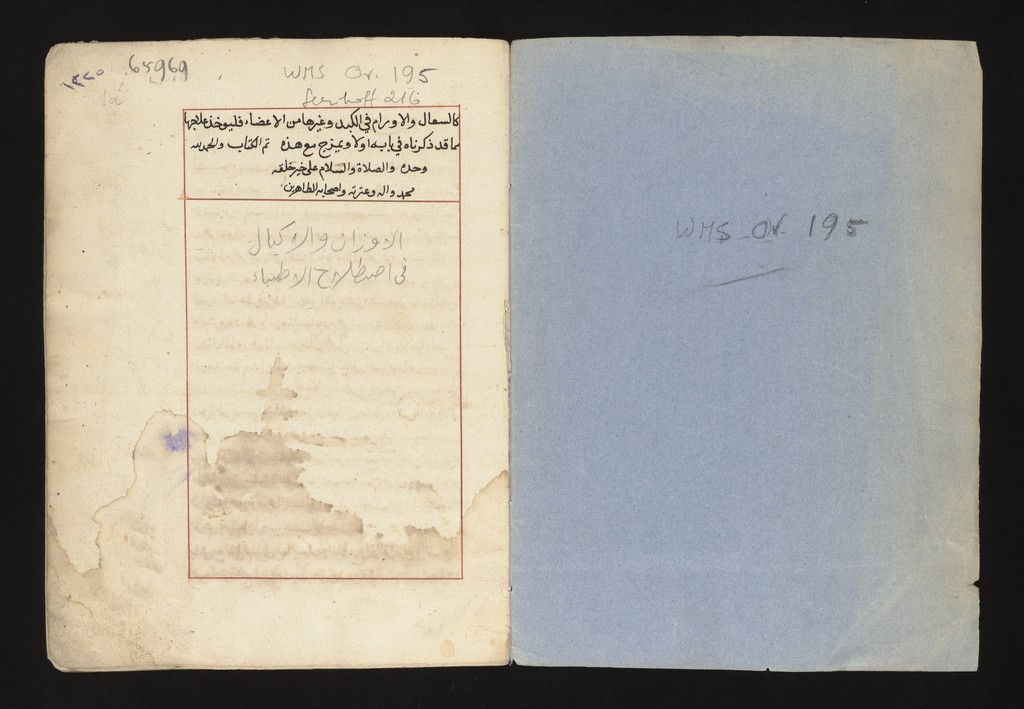 65969
WMS Or. 195
١٢٢٥
كالسعال والاورام في الكبد وغيرها من الاعضاء فليوخذ علاجها
مما قد ذكرناه في بابه اولا ويمزج مع هذه تم الكتاب والحمد لله
وحده والصلاة والسلام على خير خلقه
محمد واله وعترته واصحابه الطاهرين
الاوزان والاكيال
في اصطلاح الاطباء
WMS Or. 195